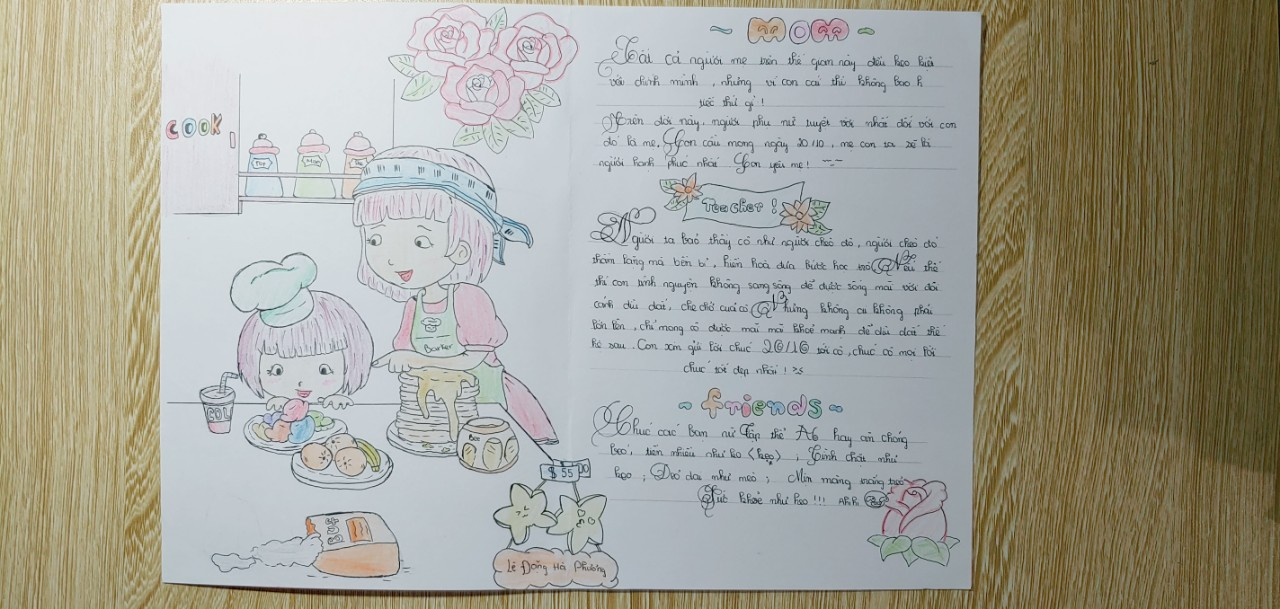 COOK
~ MOM ~
Tất cả người mẹ trên thế gian này đều keo kiệt
với chính mình, nhưng vì con cái thì không bao h
tiếc thứ gì!
Trên đời này, người phụ nữ tuyệt vời nhất đối với con
đó là mẹ. Con cầu mong ngày 20/10, mẹ con ta sẽ là
người hạnh phúc nhất. Con yêu mẹ!
Teacher!
Người ta bảo thầy cô như người chèo đò, người chèo đò
thầm lặng mà bền bỉ, hiền hoà đưa bước học trò. Nếu thế
thì con tình nguyện không sang sông để được sống mãi với đôi
cánh dìu dắt, che chở của cô. Nhưng không ca không phải
lớn lên, chỉ mong cô được mãi mãi khoẻ mạnh để dìu dắt thế
hệ sau. Con xin gửi lời chúc 20/10 tới cô, chúc cô mọi lời
chúc tốt đẹp nhất!
~ friends ~
Chúc các bạn nữ Tập thể A6 hay ăn chóng
béo, tiền nhiều như kẹo (kẹo), Tình chất như
kẹo; Dẻo dai như mèo; Mịn màng trắng trẻo
Sức khoẻ như heo!!!
Barker
COL
Bee
$ 55
Lê Đặng Hà Phương